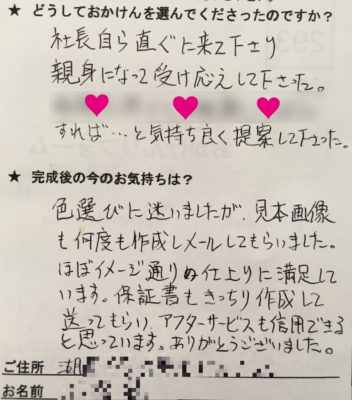 ★ どうしておかけんを選んでくださったのですか？
社長自ら直ぐに来て下さり
親身になって受け応えして下さった。
すれば…と気持ち良く提案して下さった。
★ 完成後の今のお気持ちは？
色選びに迷いましたが、見本画像
も何度も作成しメールしてもらいました。
ほぼイメージ通りの仕上りに満足して
います。保証書もきっちり作成して
送ってもらい、アフターサービスも信用できる
と思っています。ありがとうございました。
ご住所 湖
お名前